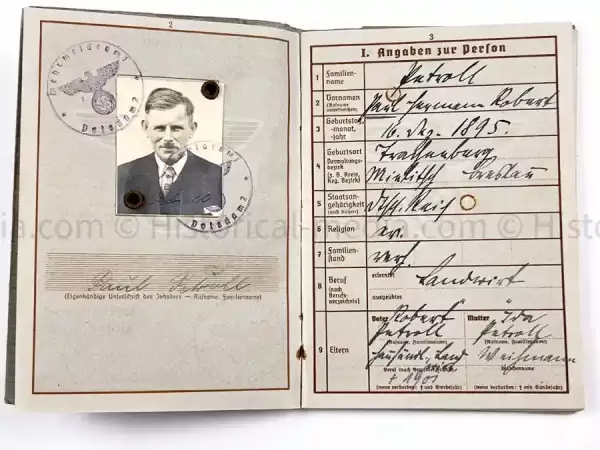 2
Wehrmeldeamt
Potsdam 2
Potsdam 2
Paul Petroll
(Eigenhändige Unterschrift des Inhabers — Rufname, Familienname)
3
I. Angaben zur Person
1 Familien-
name
Petroll
2 Vornamen
(Rufname
unterstreichen)
Paul Hermann Robert
3 Geburtstag,
-monat,
-jahr
16. Dez. 1895.
4 Geburtsort
Verwaltungs-
bezirk
(z. B. Kreis,
Reg. Bezirk)
Trachenberg
Militsch Breslau
5 Staatsan-
gehörigkeit
(auch frühere)
Dtsch. Reich
6 Religion
ev.
7 Familien-
stand
verh.
8 Beruf
(nach
Berufs-
verzeichnis)
erlernter
Landwirt
ausgeübter
"
9 Eltern
Vater Robert
Petroll
(Rufname, Familienname)
† 1901
(wenn verstorben: † und Sterbejahr)
Mutter Ida
Petroll
(Rufname, Familienname)
Weihmann
Mädchenname
(wenn verstorben: † und Sterbejahr)
Historical-Media.com © Historical-Media.com © Historical-Media.com